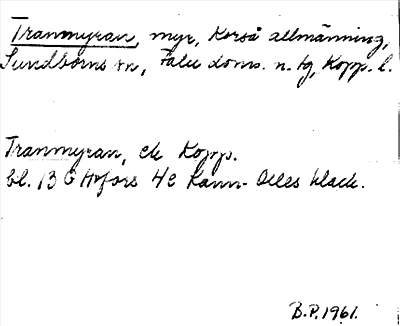 Tranmyran, myr, Korså allmänning,
Sundborns sn, Falu doms. n. tg, Kopp. l.
Tranmyran, ek Kopp.
bl. 13 G Hofors 4c Karin-Olles klack.
B.P. 1961.